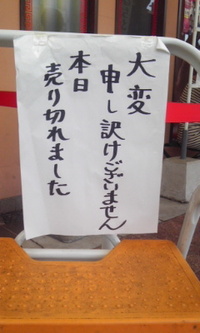 大変
申し訳けございません
本日
売り切れました